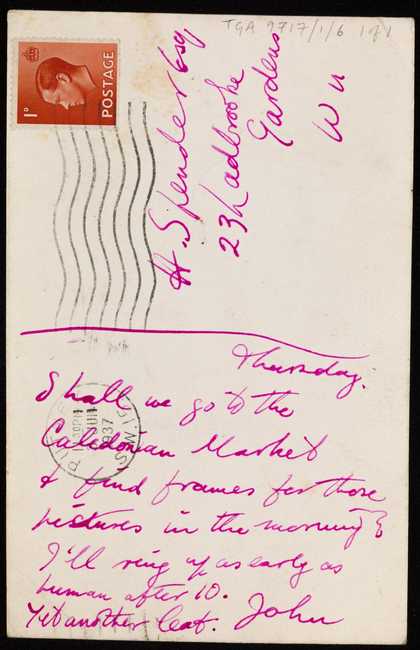 TGA 9717/1/6 1 of 1
POSTAGE
1D
H. Spender Esq
23 Ladbrooke
Gardens
W 11
Thursday.
Shall we go to the
Caledonian Market
& find frames for those
pictures in the morning
I'll ring up as early as
human after 10.
Yet another leaf. John
PM
JUN
1937
S.W.